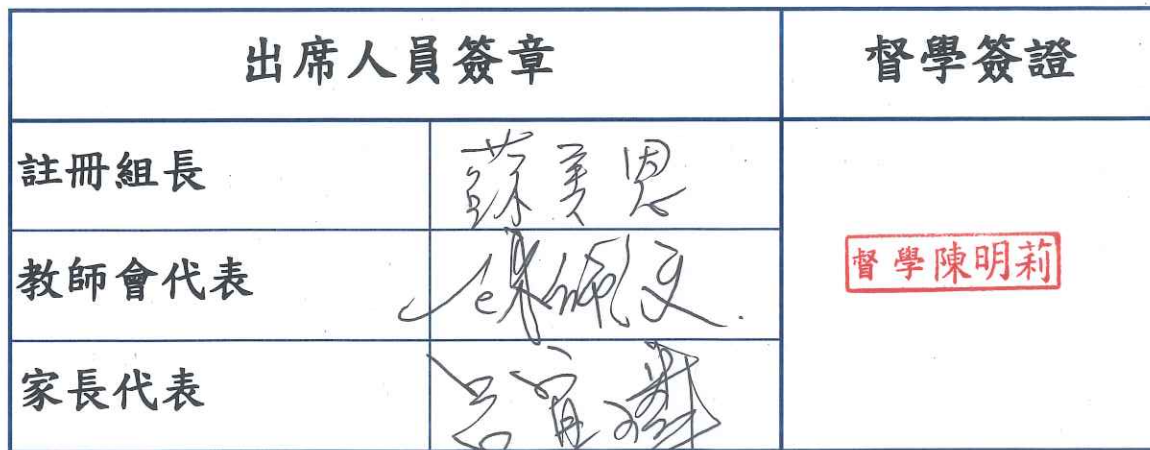 出席人員簽章 督學簽證
註冊組長 蘇美恩
督學陳明莉
教師會代表
家長代表